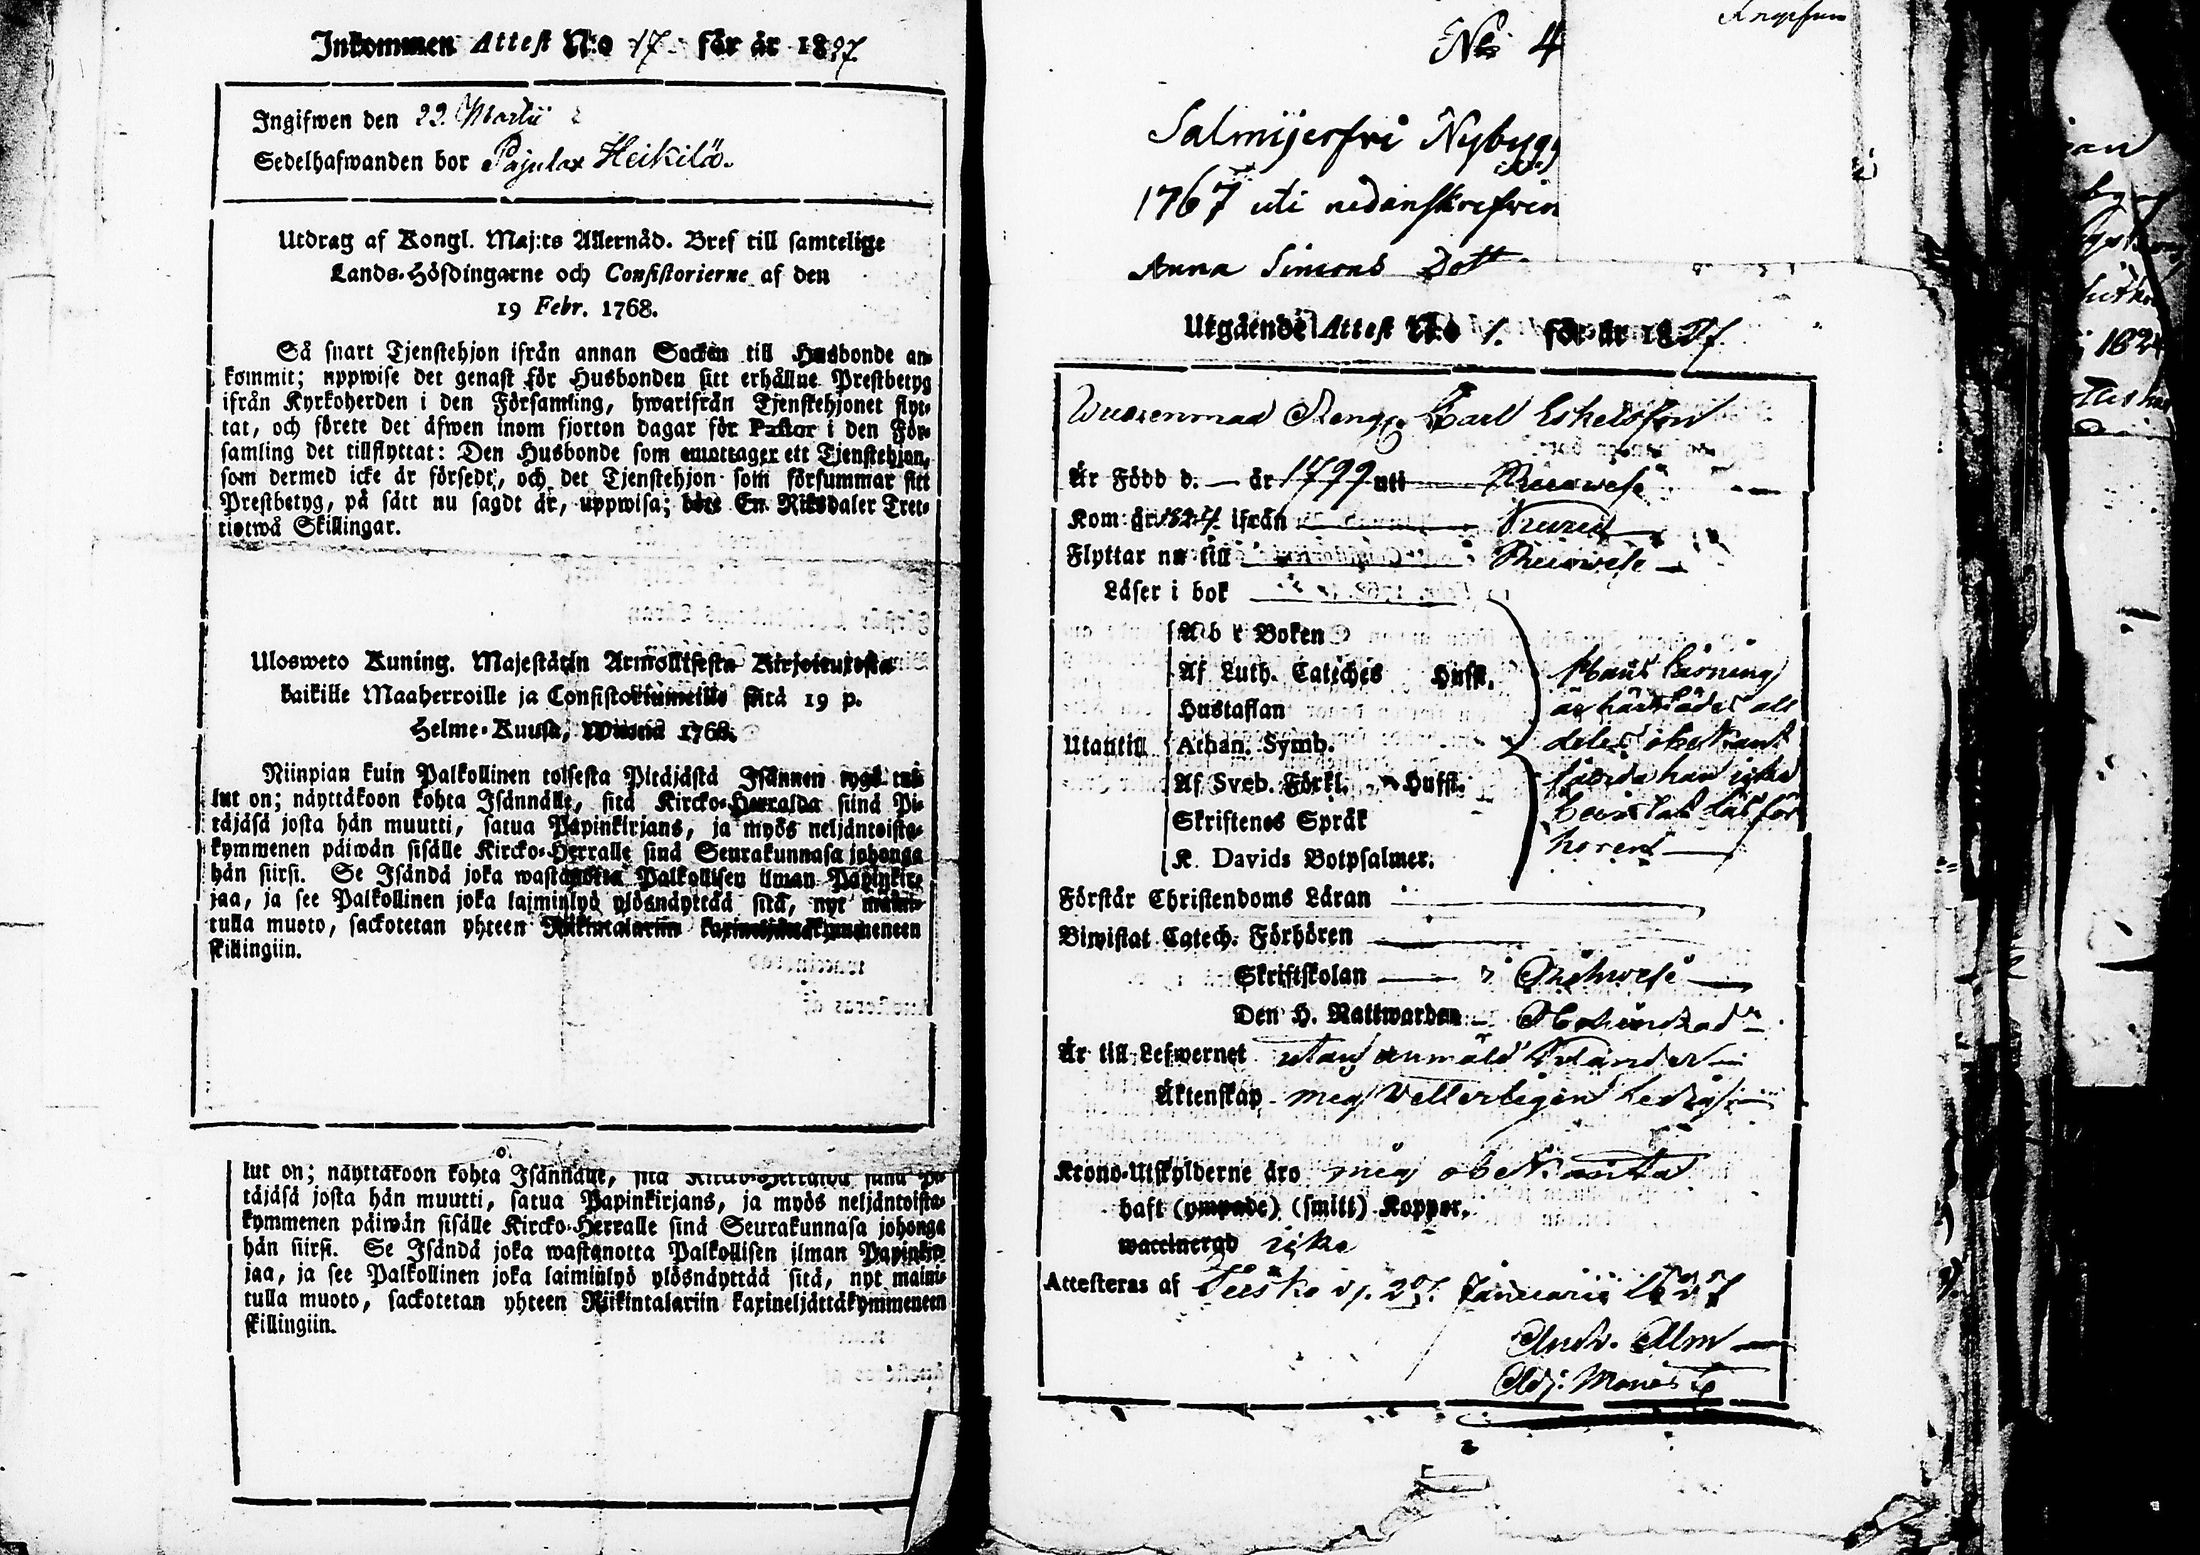 Inkommen Attest N:o 17 för år 1827.
Ingifwen den 22. Martii
Sedelhafwanden bor Pajulax Heikilä.
Utdrag af Kongl. Maj:ts Allernåd. Bref till samtelige
Lands-Höfdingarne och Consistorierne af den
19 Febr. 1768.
Så snart Tjenstehjon ifrån annan Socken till Husbonde an-
kommit; uppwise det genast för Husbonden sitt erhållne Prestbetyg
ifrån Kyrkoherden i den Församling, hwarifrån Tjenstehjonet flyt-
tat, och förete det äfwen inom fjorton dagar för Pastor i den För-
samling det tillflyttat: Den Husbonde som emottager ett Tjenstehjon,
som dermed icke är försedt, och det Tjenstehjon som försummar sitt
Prestbetyg, på sätt nu sagdt är, uppwisa; böte En Riksdaler Tret-
tiotwå Skillingar.
Ulosweto Kuning. Majestätin Armollisesta Kirjoituxesta
kaikille Maaherroille ja Consistoriumeille siitä 19 p.
Helme-Kuusa, Wuona 1768.
Niinpian kuin Palkollinen toisesta Pitäjästä Isännen tygö tul-
lut on; näyttäkoon kohta Isännälle, sitä Kircko-Herralda siinä Pi-
täjäsä josta hän muutti, saatua Papinkirjans, ja myös neljäntoista-
kymmenen päiwän sisälle Kircko-Herralle siinä Seurakunnasa johonga
hän siirsi. Se Isändä joka wastanotta Palkollisen ilman Papinkir-
jaa, ja see Palkollinen joka laiminlyö ylösnäyttää sitä, nyt maini-
tulla muoto, sackotetan yhteen Riikintalariin kaxineljättäkymmeneen
skillingiin.
lut on; näyttäkoon kohta Isännälle, sitä Kircko-Herralda siinä Pi-
täjäsä josta hän muutti, saatua Papinkirjans, ja myös neljäntoista-
kymmenen päiwän sisälle Kircko-Herralle siinä Seurakunnasa johonga
hän siirsi. Se Isändä joka wastanotta Palkollisen ilman Papinkir-
jaa, ja see Palkollinen joka laiminlyö ylösnäyttää sitä, nyt maini-
tulla muoto, sackotetan yhteen Riikintalariin kaxineljättäkymmeneen
skillingiin.
No 4
Salmijerfri Nybygg
1767 uti nedanskrefven
Anna Simons Dott
Utgående Attest N:o 1. för år 1827.
Drengen Carl Eskelsson
Är Född d. — år 1799 uti Ruowesi
Kom år 1824 ifrån
Flyttar nu till Ruowesi
Läser i bok
Utantill
A b c Boken
Af Luth. Cateches Hufst.
Hustaflan
Athan. Symb.
Af Sveb. Förkl. Hufst.
Skriftenes Språk
K. Davids Botpsalmer.
Hans läsning
är härstädes all
deles obekant
han icke
bewistat läsför
hören
Förstår Christendoms Läran
Biwistat Catech. Förhören
Skriftskolan i
Den H. Nattwarden
Är till Lefwernet utan anmäld
Äktenskap mig
Krono-Utskylderne äro mig obekanta
haft (ympade) (smitt) Koppor.
waccinerad icke
Attesteras af Teisko d. 27. Januarii 1827
Andr. Alm
Adj. Minist